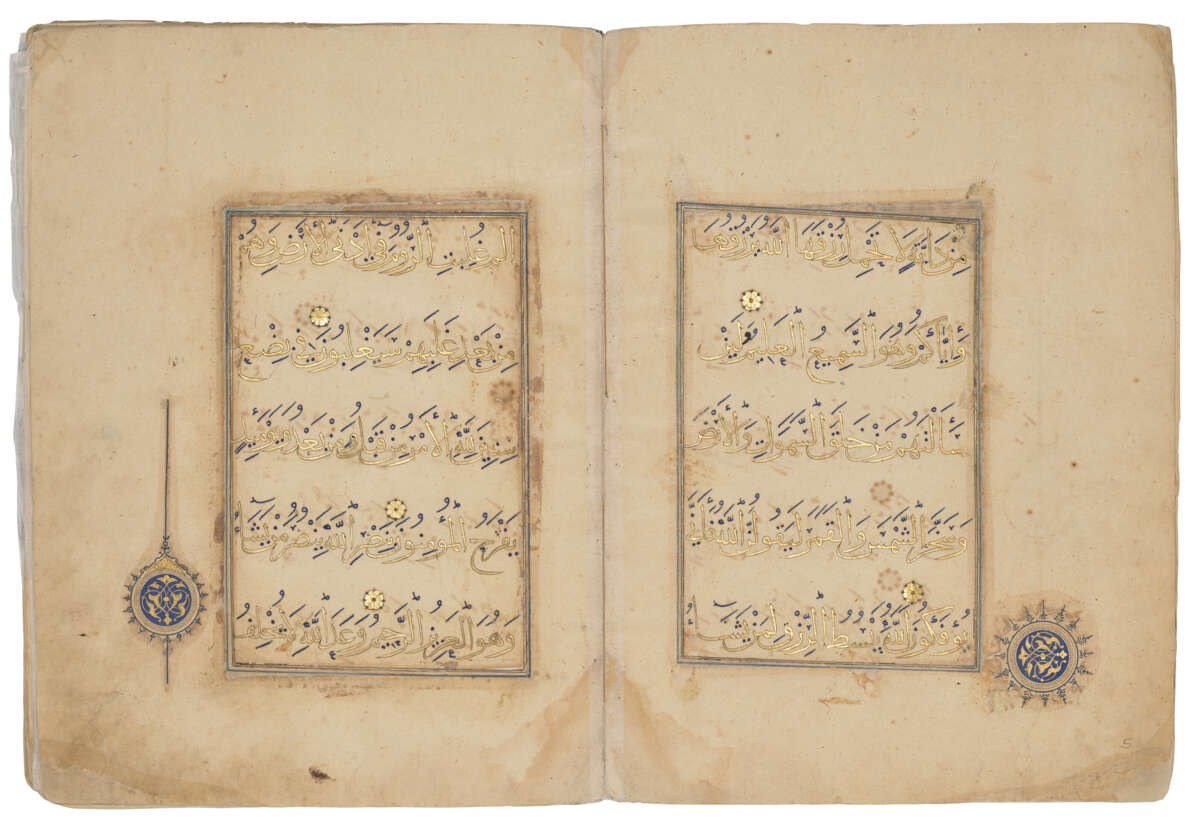 مِنْ دَابَّةٍ لَا تَحْمِلُ رِزْقَهَا اللَّهُ يَرْزُقُهَا
وَإِيَّاكُمْ وَهُوَ السَّمِيعُ الْعَلِيمُ وَلَئِنْ
سَأَلْتَهُمْ مَنْ خَلَقَ السَّمَوَاتِ وَالْأَرْضَ
وَسَخَّرَ الشَّمْسَ وَالْقَمَرَ لَيَقُولُنَّ اللَّهُ فَأَنَّى
يُؤْفَكُونَ اللَّهُ يَبْسُطُ الرِّزْقَ لِمَنْ يَشَاءُ
5
الم غُلِبَتِ الرُّومُ فِي أَدْنَى الْأَرْضِ وَهُمْ
مِنْ بَعْدِ غَلَبِهِمْ سَيَغْلِبُونَ فِي بِضْعِ
سِنِينَ لِلَّهِ الْأَمْرُ مِنْ قَبْلُ وَمِنْ بَعْدُ وَيَوْمَئِذٍ
يَفْرَحُ الْمُؤْمِنُونَ بِنَصْرِ اللَّهِ يَنْصُرُ مَنْ يَشَاءُ
وَهُوَ الْعَزِيزُ الرَّحِيمُ وَعْدَ اللَّهِ لَا يُخْلِفُ